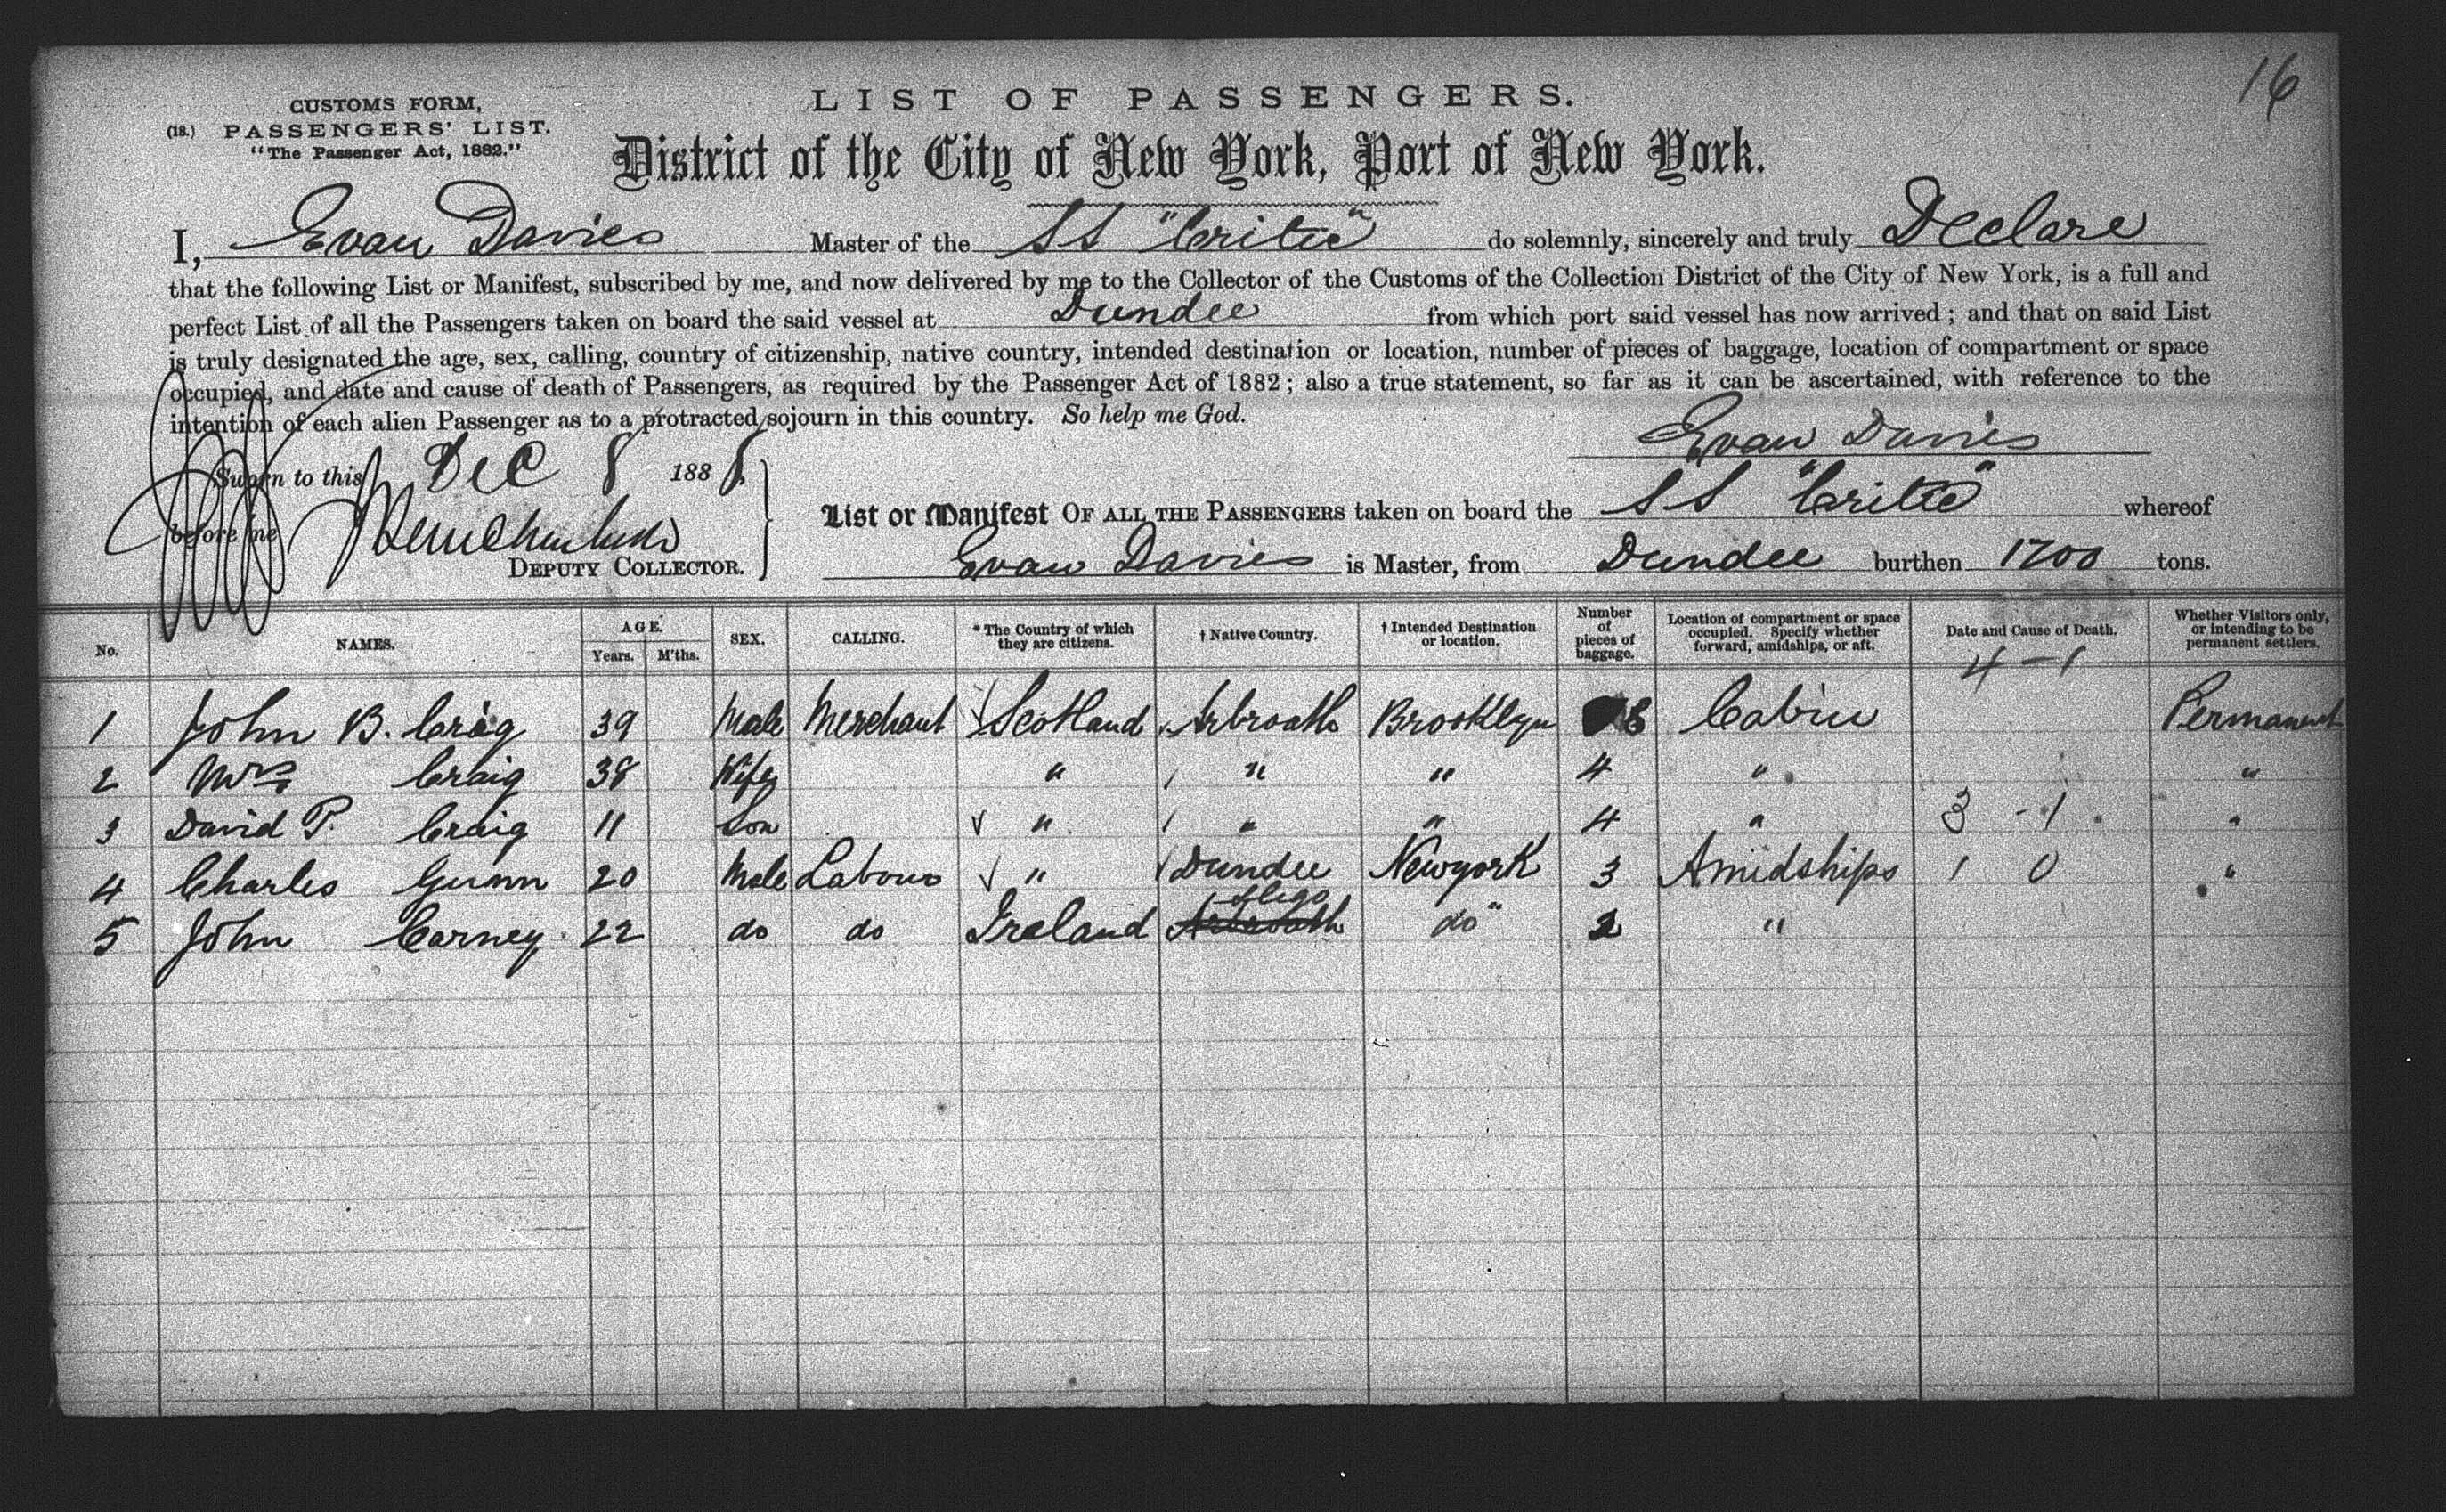 16
LIST OF PASSENGERS.
CUSTOMS FORM,
(18.) PASSENGERS' LIST.
"The Passenger Act, 1882."
District of the City of New York, Port of New York.
I, Evan Davies Master of the SS "Critic" do solemnly, sincerely and truly Declare
that the following List or Manifest, subscribed by me, and now delivered by me to the Collector of the Customs of the Collection District of the City of New York, is a full and
perfect List of all the Passengers taken on board the said vessel at Dundee from which port said vessel has now arrived; and that on said List
is truly designated the age, sex, calling, country of citizenship, native country, intended destination or location, number of pieces of baggage, location of compartment or space
occupied, and date and cause of death of Passengers, as required by the Passenger Act of 1882; also a true statement, so far as it can be ascertained, with reference to the
intention of each alien Passenger as to a protracted sojourn in this country. So help me God.
Evan Davies
Sworn to this Dec 8 1888
before me
DEPUTY COLLECTOR.
List or Manifest OF ALL THE PASSENGERS taken on board the SS "Critic" whereof
Evan Davies is Master, from Dundee burthen 1700 tons.
No. NAMES. AGE. Years. M'ths. SEX. CALLING. * The Country of which they are citizens. † Native Country. † Intended Destination or location. Number of pieces of baggage. Location of compartment or space occupied. Specify whether forward, amidships, or aft. Date and Cause of Death. Whether Visitors only, or intending to be permanent settlers.
4 - 1
1 John B. Craig 39 Male Merchant Scotland Arbroath Brooklyn 8 Cabin Permanent
2 Mrs Craig 38 Wife " " " 4 " "
3 David P. Craig 11 Son " " " 4 " 3 - 1 "
4 Charles Gunn 20 Male Labour " Dundee Newyork 3 Amidships 1 0 "
5 John Carney 22 do do Ireland Arbroath Sligo do " 2 "